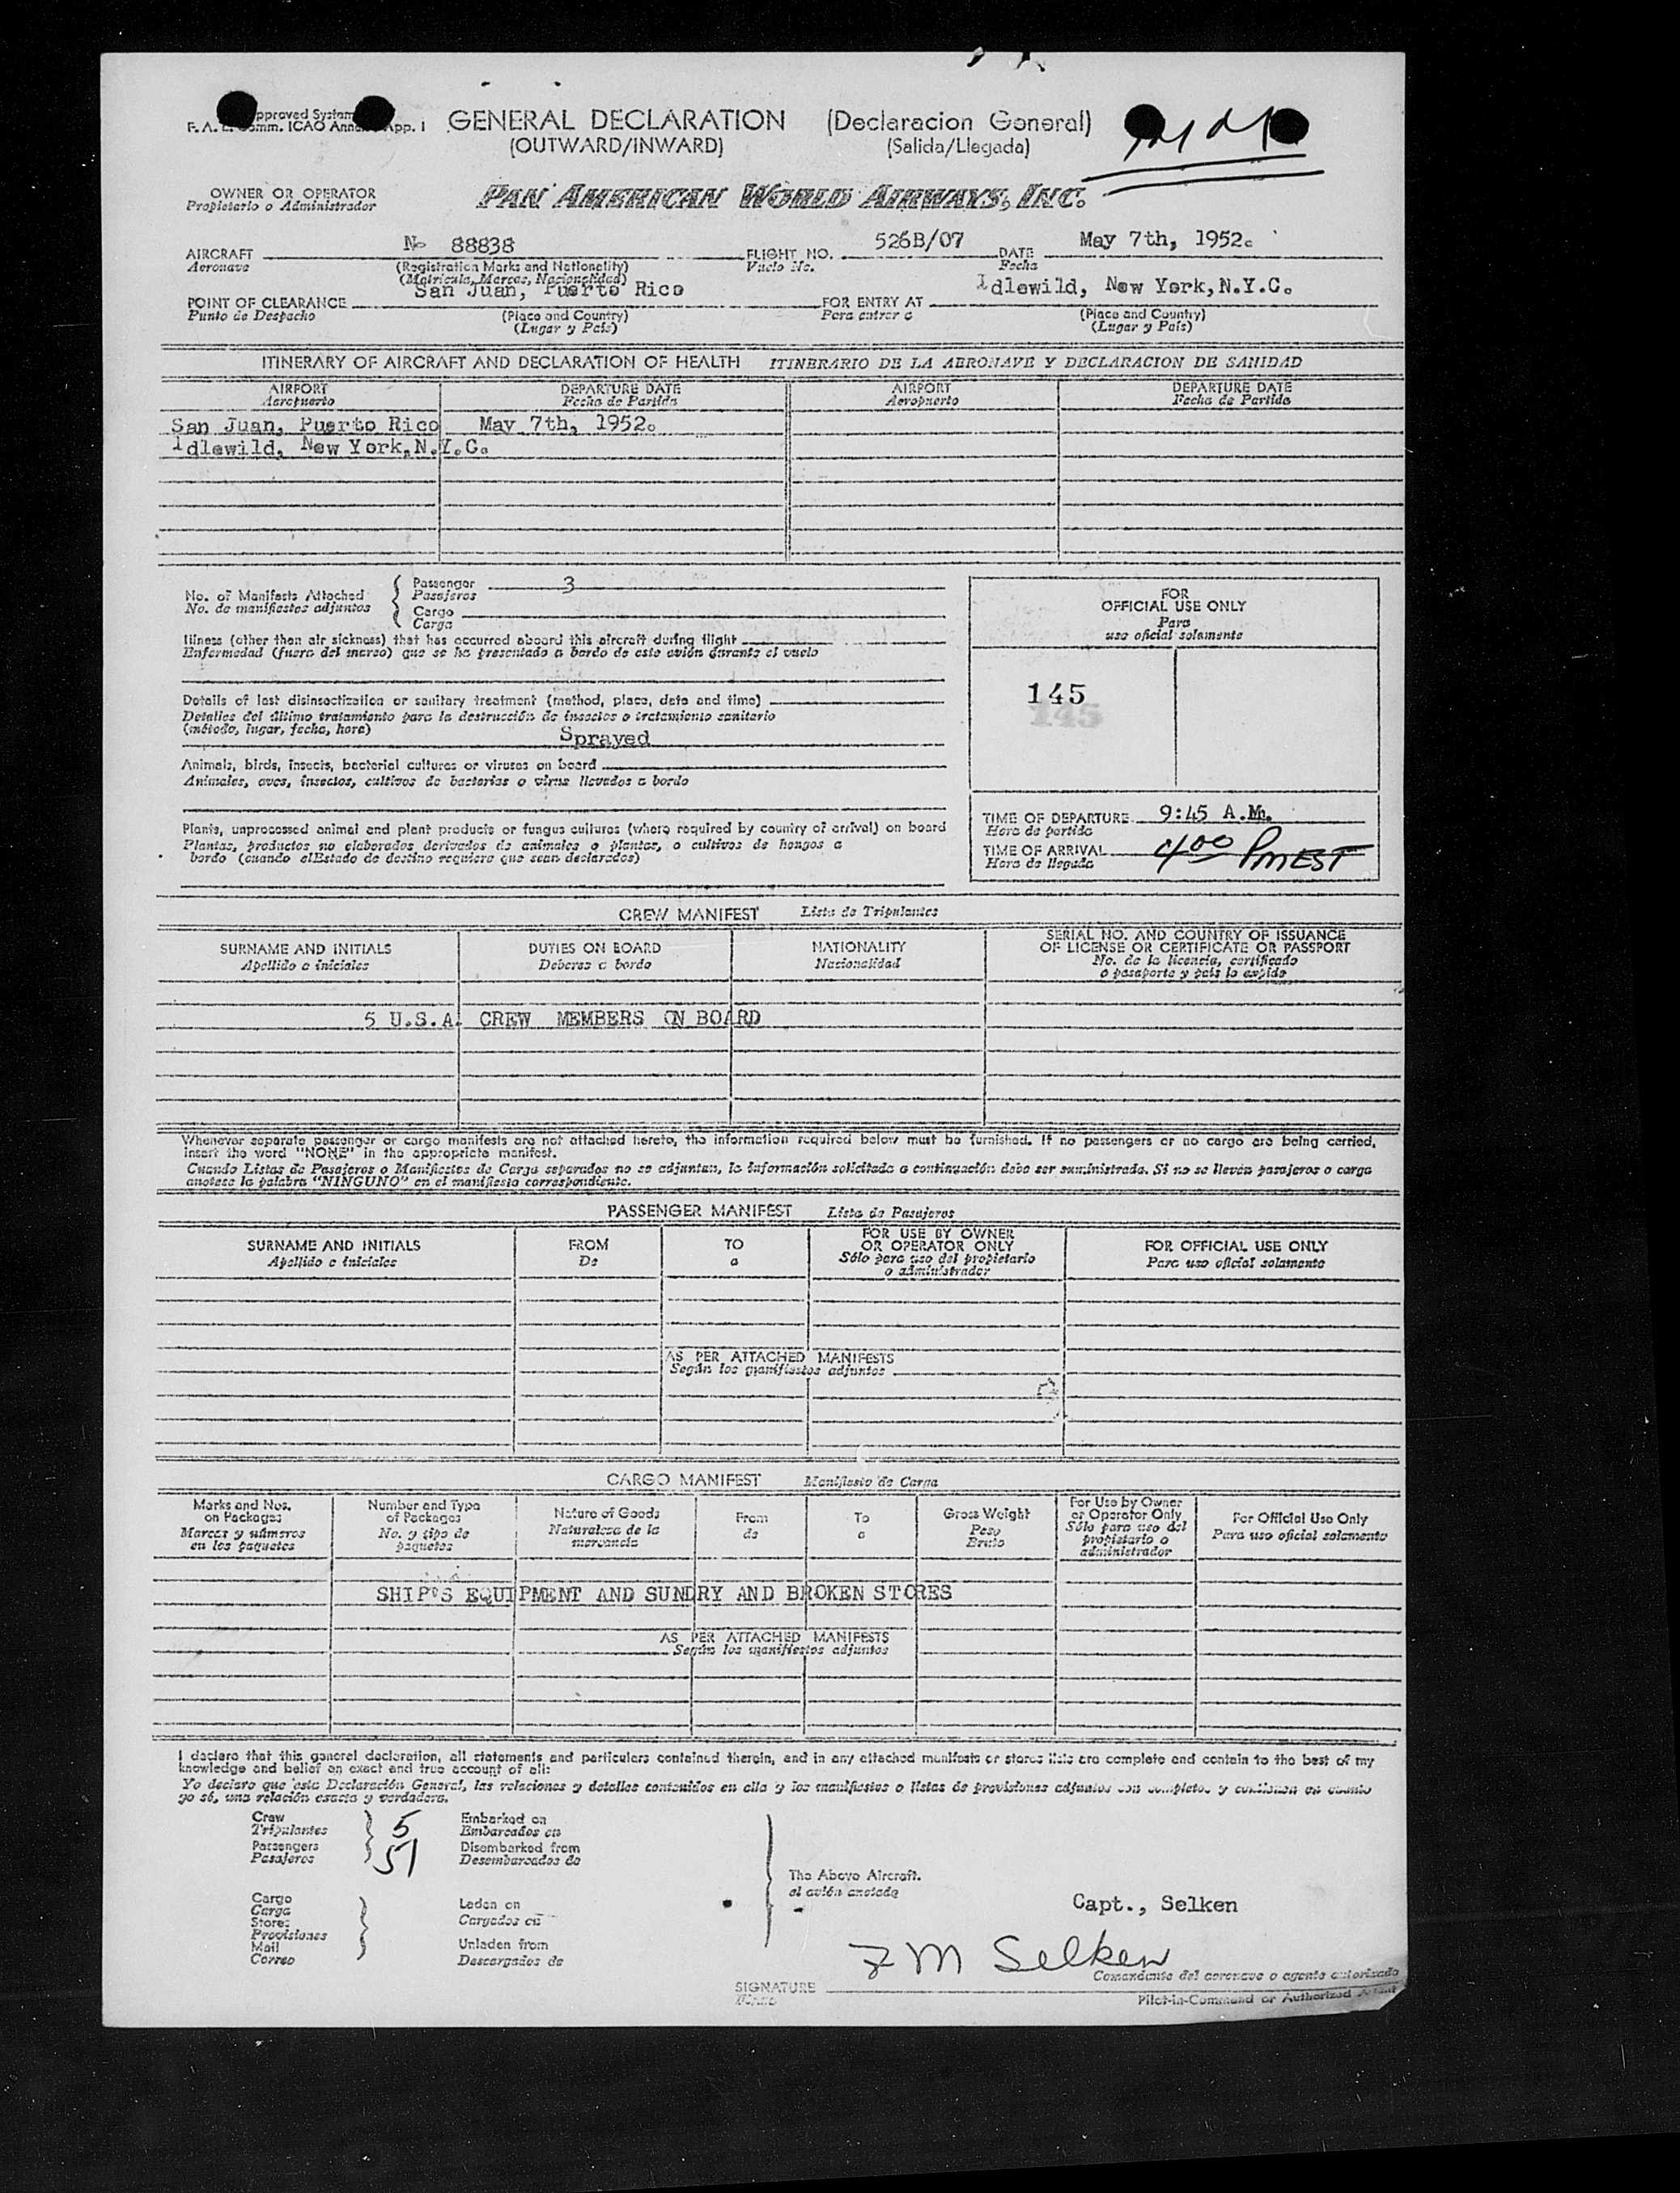 Approved System
F. A. L. Comm. ICAO Annex App. 1
GENERAL DECLARATION (Declaracion General)
(OUTWARD/INWARD) (Salida/Llegada)
OWNER OR OPERATOR
Propietario o Administrador
PAN AMERICAN WORLD AIRWAYS, INC.
AIRCRAFT N- 88838 FLIGHT NO. 526B/07 DATE May 7th, 1952.
Aeronave (Registration Marks and Nationality) Vuelo No. Fecha
(Matricula, Marcas, Nacionalidad)
POINT OF CLEARANCE San Juan, Puerto Rico FOR ENTRY AT Idlewild, New York, N.Y.C.
Punto de Despacho (Place and Country) Para entrar a (Place and Country)
(Lugar y País) (Lugar y País)
ITINERARY OF AIRCRAFT AND DECLARATION OF HEALTH ITINERARIO DE LA AERONAVE Y DECLARACION DE SANIDAD
AIRPORT DEPARTURE DATE AIRPORT DEPARTURE DATE
Aeropuerto Fecha de Partida Aeropuerto Fecha de Partida
San Juan, Puerto Rico May 7th, 1952.
Idlewild, New York, N.Y.C.
No. of Manifests Attached Passenger 3
No. de manifiestos adjuntos Pasajeros
Cargo
Carga
Illness (other than air sickness) that has occurred aboard this aircraft during flight
Enfermedad (fuera del mareo) que se ha presentado a bordo de este avión durante el vuelo
Details of last disinsectization or sanitary treatment (method, place, date and time)
Detalles del último tratamiento para la destrucción de insectos o tratamiento sanitario
(método, lugar, fecha, hora)
Sprayed
Animals, birds, insects, bacterial cultures or viruses on board
Animales, aves, insectos, cultivos de bacterias o virus llevados a bordo
Plants, unprocessed animal and plant products or fungus cultures (where required by country of arrival) on board
Plantas, productos no elaborados derivados de animales o plantas, o cultivos de hongos a
bordo (cuando el Estado de destino requiere que sean declarados)
FOR
OFFICIAL USE ONLY
Para
uso oficial solamente
145
145
TIME OF DEPARTURE 9:45 A.M.
Hora de partida
TIME OF ARRIVAL 4:00 PMEST
Hora de llegada
CREW MANIFEST Lista de Tripulantes
SURNAME AND INITIALS DUTIES ON BOARD NATIONALITY SERIAL NO. AND COUNTRY OF ISSUANCE
OF LICENSE OR CERTIFICATE OR PASSPORT
Apellido e iniciales Deberes a bordo Nacionalidad No. de la licencia, certificado
o pasaporte y pais lo expide
5 U.S.A. CREW MEMBERS ON BOARD
Whenever separate passenger or cargo manifests are not attached hereto, the information required below must be furnished. If no passengers or no cargo are being carried,
insert the word "NONE" in the appropriate manifest.
Cuando Listas de Pasajeros o Manifiestos de Carga separados no se adjuntan, la información solicitada a continuación debe ser suministrada. Si no se lleven pasajeros o carga
anotese la palabra "NINGUNO" en el manifiesto correspondiente.
PASSENGER MANIFEST Lista de Pasajeros
SURNAME AND INITIALS FROM TO FOR USE BY OWNER
OR OPERATOR ONLY FOR OFFICIAL USE ONLY
Apellido e iniciales De a Sólo para uso del propietario
o administrador Para uso oficial solamente
AS PER ATTACHED MANIFESTS
Según los manifiestos adjuntos
CARGO MANIFEST Manifiesto de Carga
Marks and Nos.
on Packages
Marcas y números
en los paquetes
Number and Type
of Packages
No. y tipo de
paquetes
Nature of Goods
Naturaleza de la
mercancia
From
de
To
a
Gross Weight
Peso
Bruto
For Use by Owner
or Operator Only
Sólo para uso del
propietario o
administrador
For Official Use Only
Para uso oficial solamente
SHIP'S EQUIPMENT AND SUNDRY AND BROKEN STORES
AS PER ATTACHED MANIFESTS
Según los manifiestos adjuntos
I declare that this general declaration, all statements and particulars contained therein, and in any attached manifests or stores lists are complete and contain to the best of my
knowledge and belief an exact and true account of all:
Yo declaro que esta Declaración General, las relaciones y detalles contenidos en ella y los manifiestos o listas de provisiones adjuntos son completos y contienen en cuanto
yo sé, una relación exacta y verdadera.
Crew 5 Embarked on
Tripulantes Embarcados en
Passengers 51 Disembarked from
Pasajeros Desembarcados de
The Above Aircraft.
el avión anotado
Cargo Laden on
Carga Cargados en
Stores
Provisiones
Mail Unladen from
Correo Descargados de
Capt., Selken
F M Selken
Comandante del aeronave o agente autorizado
SIGNATURE
Firma
Pilot-in-Command or Authorized Agent